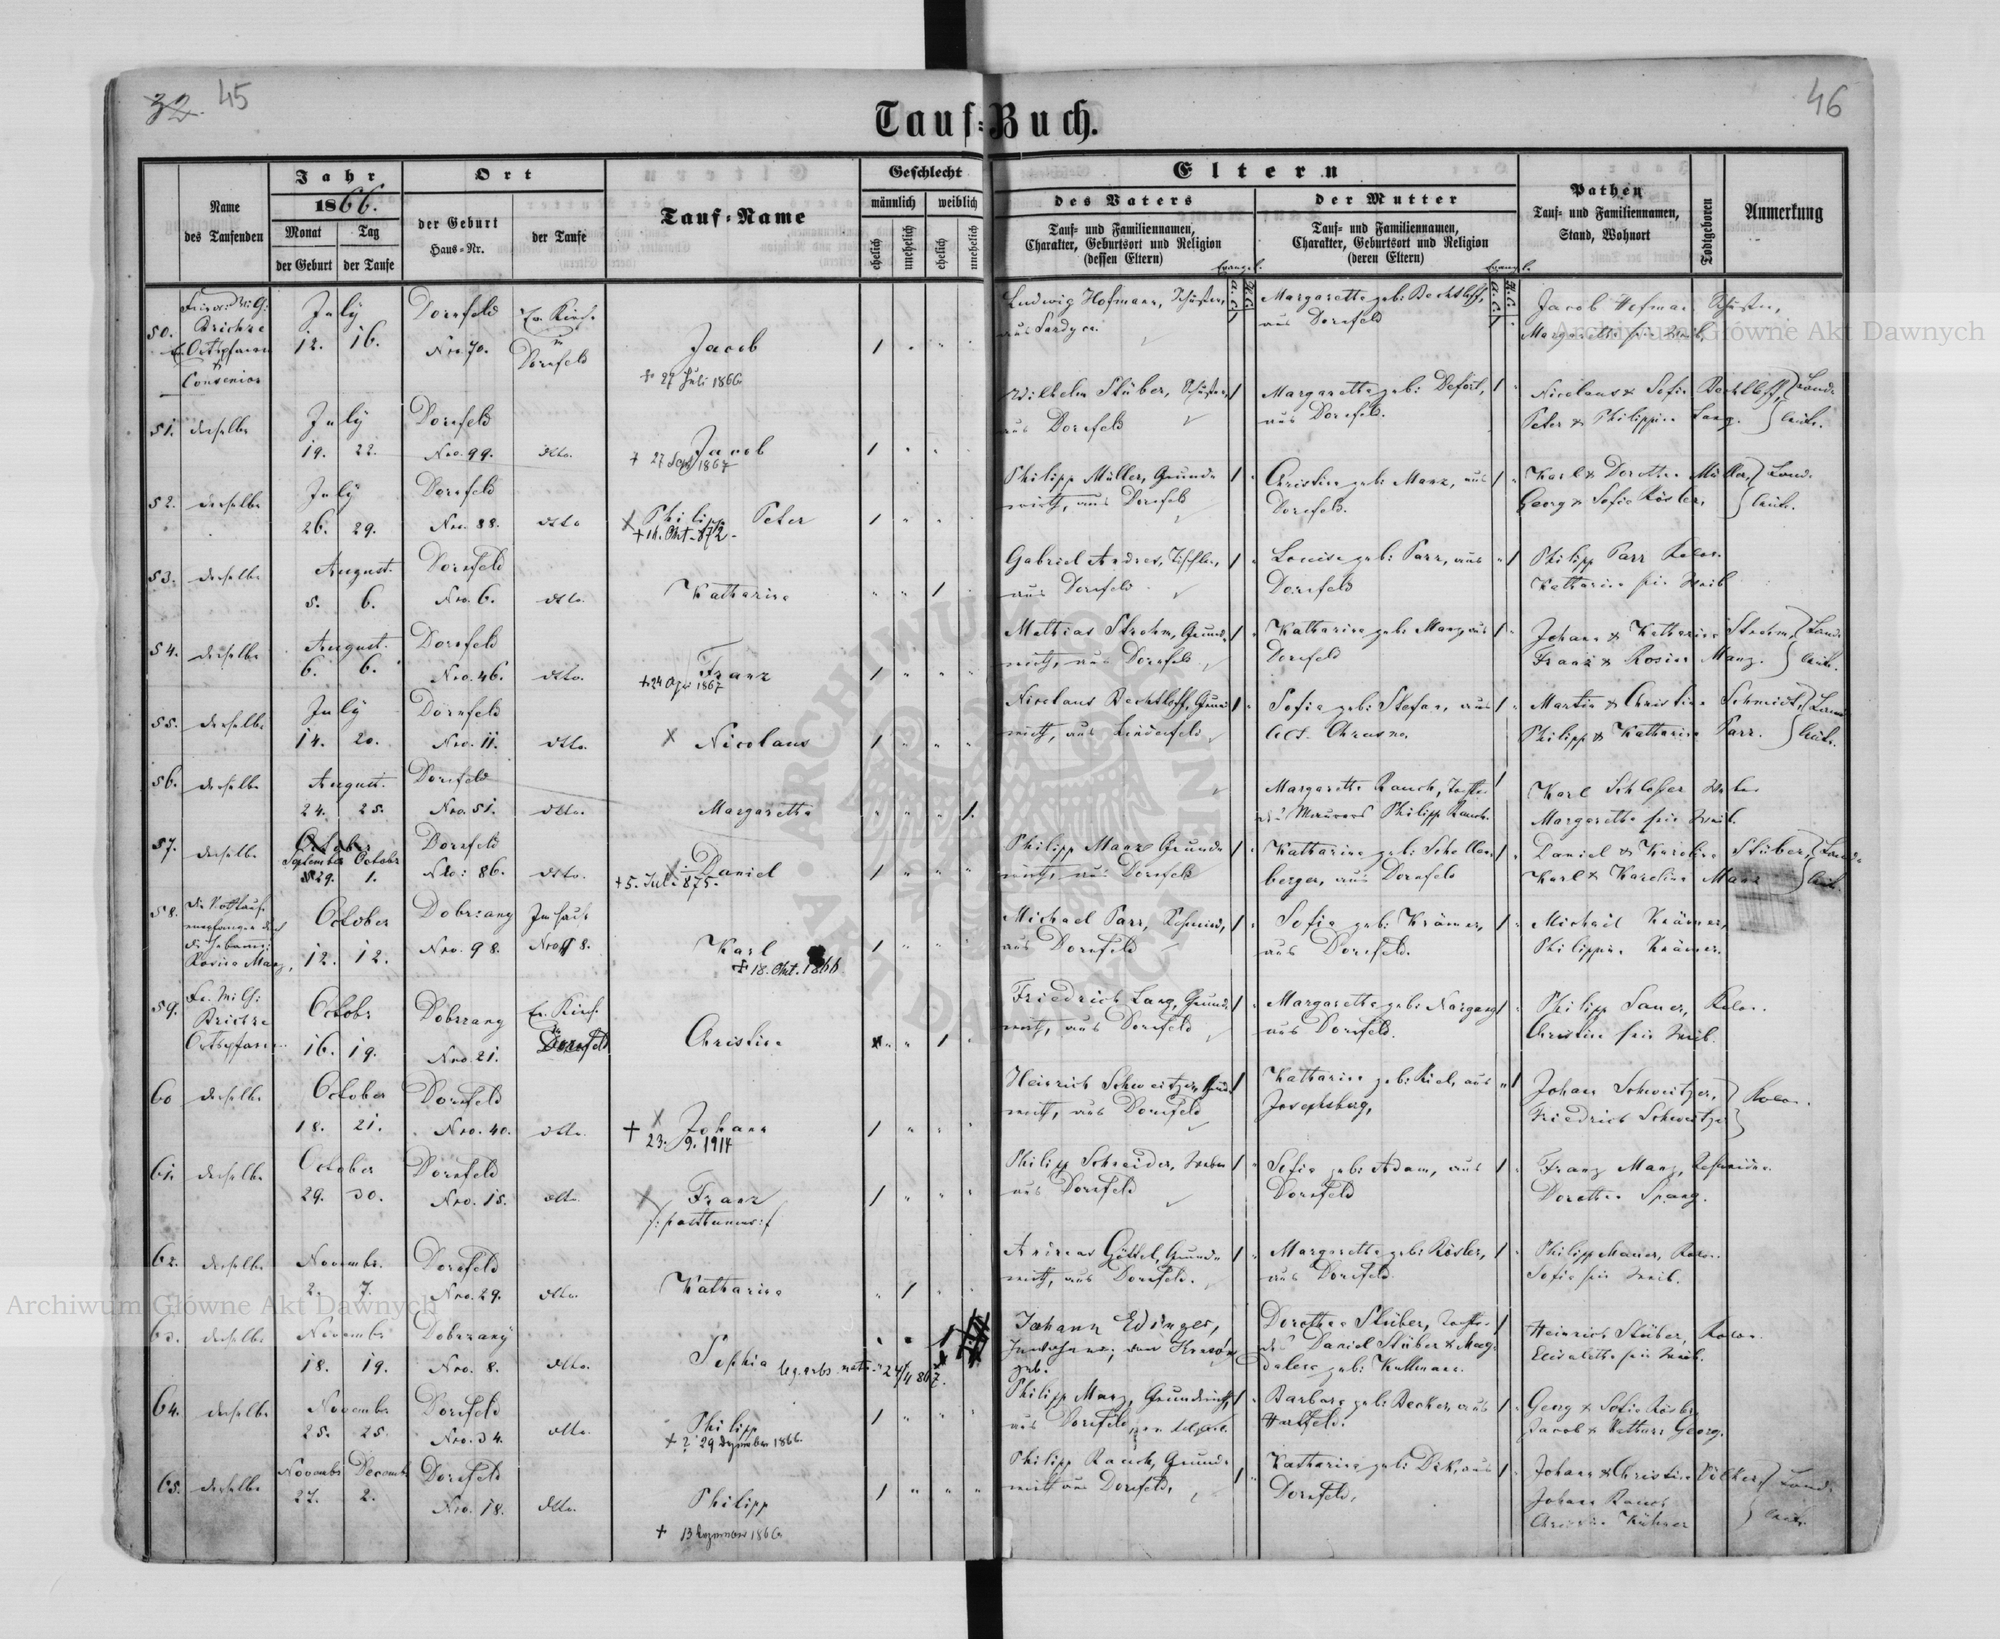 32. 45
46
Tauf=Buch.
Name
des Taufenden
Jahr
1866.
Monat Tag
der Geburt der Taufe
Ort
der Geburt
Haus=Nr.
der Taufe
Tauf=Name
Geschlecht
männlich weiblich
ehelich unehelich ehelich unehelich
Eltern
des Vaters
Tauf= und Familiennamen,
Charakter, Geburtsort und Religion
(dessen Eltern)
der Mutter
Tauf= und Familiennamen,
Charakter, Geburtsort und Religion
(deren Eltern)
Evangel.
A. C. H. C.
Evangel.
A. C. H. C.
Pathen
Tauf= und Familiennamen,
Stand, Wohnort
Todtgeboren
Anmerkung
50.
Ortspfarrer
Consenior
July
12. 16.
Dornfeld
Nro. 70.
Ev. Kirche
in
Dornfeld
Jacob
+ 27 Juli 1866
1
Ludwig Hofmann, Schuster,
aus
Margaretha geb: Bechtloff,
aus Dornfeld
Jacob Hofman Schuster,
Margaretha sein Weib.
51. derselbe
July
19. 22.
Dornfeld
Nro. 99.
dtto.
Jacob
1867
1
Wilhelm Stüber, Schuster,
aus Dornfeld
Margaretha geb:
aus Dornfeld.
Nicolaus & Sofia Bechtloff, Land-
Peter & Philippine Lang. leute.
52. derselbe
July
26. 29.
Dornfeld
Nro. 88.
dtto
Philipp Peter
+ 14. Okt. 872.
1
Philipp Müller, Grund-
wirth, aus Dornfeld
Christine geb: Manz, aus
Dornfeld.
Karl & Dorothea Müller, Land-
Georg & Sofia Rösler, leute.
53. derselbe
August
5. 6.
Dornfeld
Nro. 6.
dtto.
Katharina
1
Gabriel Andres, Tischler,
aus Dornfeld
Louise geb: Parr, aus
Dornfeld
Philipp Parr Kolon.
Katharina sein Weib
54. derselbe
August.
6. 6.
Dornfeld
Nro. 46.
dtto.
Franz
+ 24 Apr 1867
1
Mathias Strohm, Grund-
wirth, aus Dornfeld
Katharina geb: Manz, aus
Dornfeld
Johann & Katharina Strohm, Land-
Franz & Rosina Manz. leute.
55. derselbe
July
14. 20.
Dornfeld
Nro. 11.
dtto.
Nicolaus
1
Nicolaus Bechtloff, Grund-
wirth, aus Lindenfeld
Sofia geb: Stefan, aus
Martin & Christine Schmidt, Land-
Philipp & Katharina Parr. leute.
56. derselbe
August.
24. 25.
Dornfeld
Nro. 51.
dtto.
Margaretha
1.
Margaretha Rauch, Tochter
des Maurers Philipp Rauch.
Karl Schlosser
Margaretha sein Weib.
57. derselbe
September October
29. 1.
Dornfeld
Nro: 86.
dtto.
Daniel
+ 5. Juli 875.
1
Philipp Manz Grund-
wirth, aus Dornfeld
Katharina geb: Schellen-
berger, aus Dornfeld
Daniel & Karolina Stüber, Land-
Karl & Karolina Manz leute.
58. die Nothtaufe
Rosina Manz,
October
12. 12.
Dobrzany
Nro. 98.
Im Hause
Karl
+ 18. Okt. 1866
1
Michael Parr, Schmied,
aus Dornfeld
Sofia geb: Krämer,
aus Dornfeld.
Michael Krämer,
Philippine Krämer.
59.
October
16. 19.
Dobrzany
Nro. 21.
Ev. Kirche
Dornfeld
Christine
1
Friedrich Lang, Grund-
wirth, aus Dornfeld
Margaretha geb: Nargang
aus Dornfeld.
Philipp Sauer, Kolon.
Christine sein Weib.
60 derselbe
October
18. 21.
Dornfeld
Nro. 40.
dtto.
Johann
+ 23. 9. 1914
1
Heinrich Schweitzer, Grund-
wirth, aus Dornfeld
Katharina geb: Riel, aus
Josephsberg,
Johann Schweitzer,
Friedrich Schweitzer
Kolon.
61. derselbe
October
29. 30.
Dornfeld
Nro. 15.
dtto.
Franz
/: posthumus :/
1
Philipp Schneider, Weber
aus Dornfeld
Sofia geb: Adam, aus
Dornfeld
Franz Manz, Schneider
Dorothea Spang.
62. derselbe
Novembr.
2. 7.
Dornfeld
Nro. 29.
dtto.
Katharina
1
Andreas Göttel, Grund-
wirth, aus Dornfeld.
Margaretha geb: Rösler,
aus Dornfeld.
Philipp Mauer, Kolon.
Sofia sein Weib.
63. derselbe
Novembr
18. 19.
Dobrzany
Nro. 8.
dtto.
Sophia
1
Johann Edinger,
geb.
Dorothea Stüber, Tochter
des Daniel Stüber & Mag-
dalena geb: Kullmann.
Heinrich Stüber, Kolon.
Elisabetha sein Weib.
64. derselbe
Novembr
25. 25
Dornfeld
Nro. 34.
dtto.
Philipp
+ 29 Dezember 1866.
1
Philipp Manz, Grundwirth,
aus Dornfeld
Barbara geb: Becker, aus
Hartfeld.
Georg & Sofia Rösler
Jacob & Kathar: Georg.
65. derselbe
Novembr Decembr
27. 2.
Dornfeld
Nro. 18.
dtto.
Philipp
+ 13 Dezember 1866
1
Philipp Rauch, Grund-
wirth aus Dornfeld,
Katharina geb: Dik, aus
Dornfeld,
Johann & Christine Völker, Land-
Johann Rauch leute.
Christine Kühner
Archiwum Główne Akt Dawnych
Archiwum Główne Akt Dawnych
ARCHIWUM GŁÓWNE AKT DAWNYCH